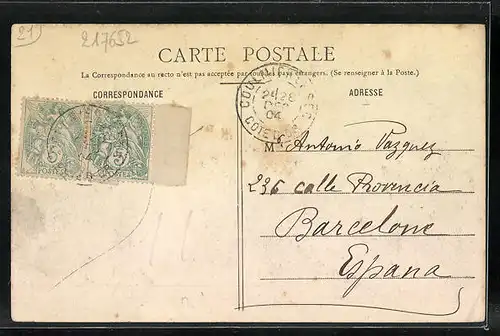 21
217652
CARTE POSTALE
La Correspondance au recto n'est pas acceptée par tous les pays étrangers. (Se renseigner à la Poste.)
CORRESPONDANCE
ADRESSE
04
COTE D'OR
5 5
POSTES
M Antonio Vazquez
236 calle Provencia
Barcelone
Espana